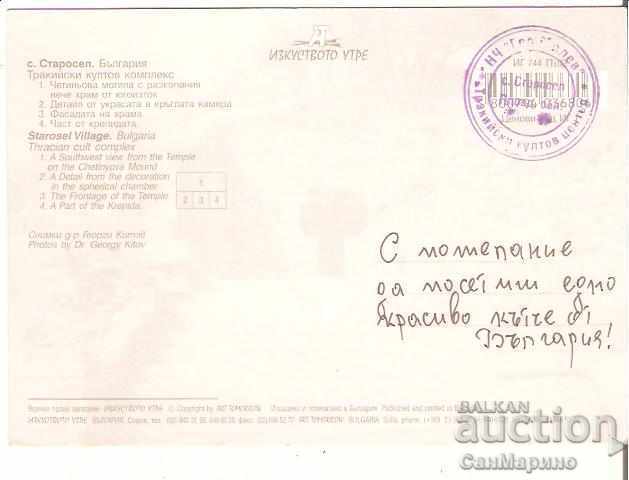 ИЗКУСТВОТО УТРЕ
с. Старосел. България
Тракийски култов комплекс
1. Четиньова могила с разкопания
нече храм от югоизток
2. Детайл от украсата в кръглата камера
3. Фасадата на храма
4. Част от крепидата
Starosel Village. Bulgaria
Thracian cult complex
1. A Southwest view from the Temple
on the Chetinyova Mound
2. A Detail from the decoration
in the spherical chamber
3. The Frontage of the Temple
4. A Part of the Krepida.
1.
2 3 4
Снимки д-р Георги Китов
Photos by Dr. Georgy Kitov
с. Старосел
Тракийски култов център
С пожелание
да посетиш едно
красиво кътче от
България!
Всички права запазени ИЗКУСТВОТО УТРЕ © Copyright by ART TOMORROW
ИЗКУСТВОТО УТРЕ БЪЛГАРИЯ София, тел.
ART TOMORROW BULGARIA Sofia, phone:
BALKAN
auction
СанМарино